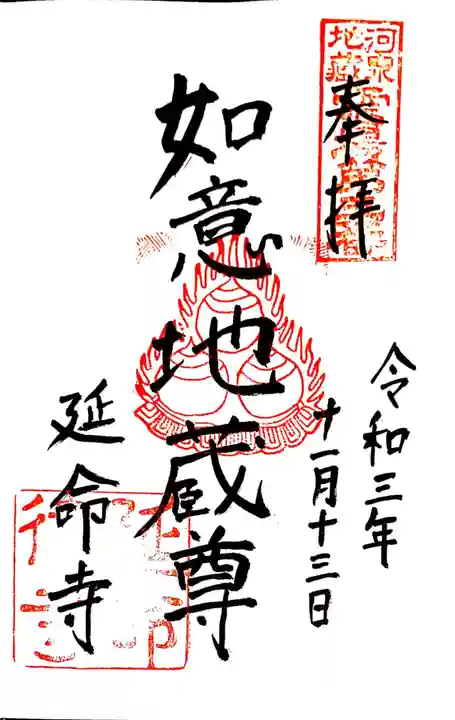 奉拝
河泉
地蔵霊場
令和三年
十一月十三日
如意地蔵尊
延命寺